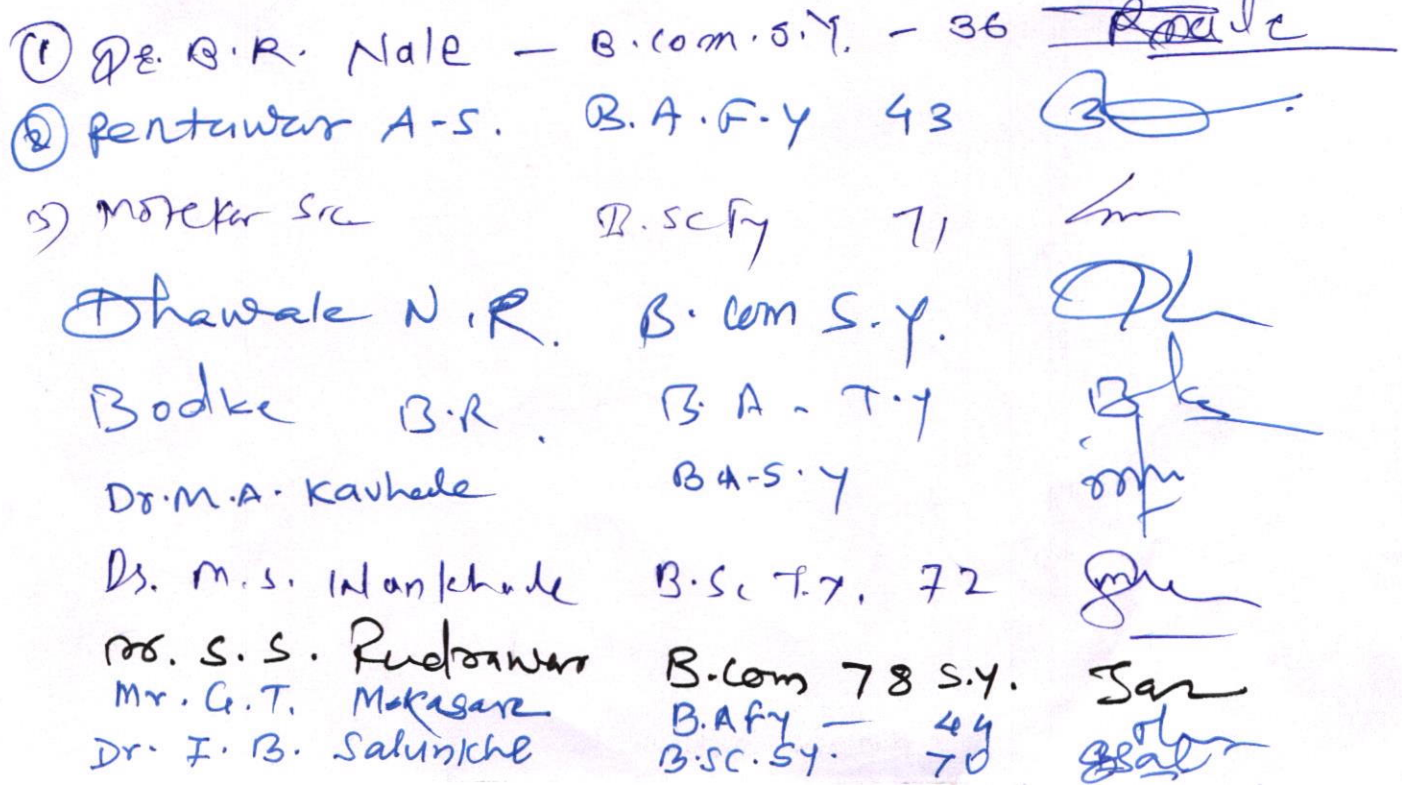 ① Dr. B.R. Nale - B.com.S.Y. - 36
② Pentawar A-S. B.A.F-Y 43
3) Motekar B.Sc Fy 71
Dhawale N.R. B. Com S.Y.
Bodke B.R. B.A - T.y
Dr. M.A. Kavhale B A-S.Y
Dr. M.S. Wankhade B.Sc T.Y. 72
Dr. S.S. Rudrawar B.Com 78 S.Y.
Mr. G.T. Makasare B.A fy - 44
Dr. I.B. Salunkhe B.SC.SY. 70